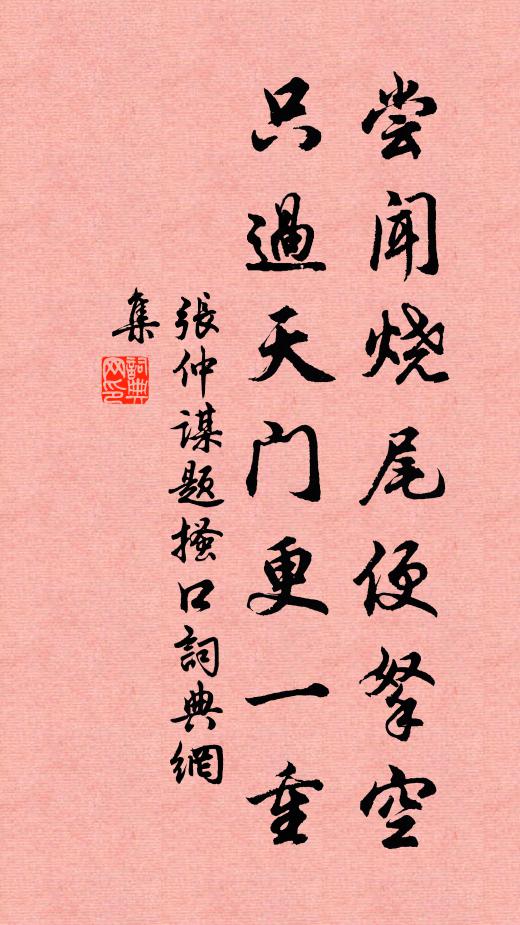 尝闻烧尾便拏空
只過天门更一重
張仲谋题搔口詞典網
集
詞典网印